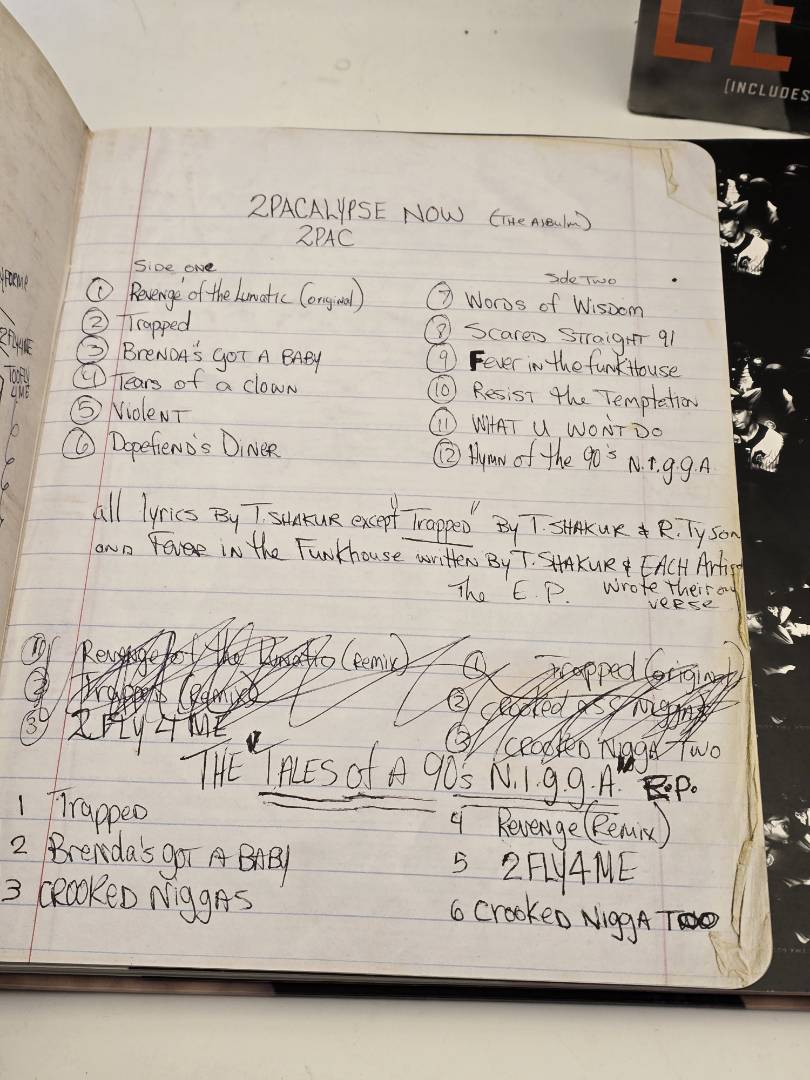 LE
[INCLUDES
2PACALYPSE NOW (THE AlBulm)
2PAC
Side one
① Revenge of the Lunatic (original)
② Trapped
③ BRENDA'S GOT A BABY
④ Tears of a clown
⑤ Violent
⑥ Dopefiend's Diner
Side Two
⑦ Words of Wisdom
⑧ Scared Straight 91
⑨ Fever in the funkHouse
⑩ Resist the Temptation
⑪ WHAT U WON'T DO
⑫ Hymn of the 90's N.I.g.g.A.
all lyrics By T. SHAKUR except "Trapped" By T. SHAKUR & R. Tyson
and Fever in the Funkhouse written By T. SHAKUR & EACH Artist
wrote their own
verse
The E.P.
① Revenge of the Lunatic (Remix)
② Trapped (Remix)
③ 2 FLY 4 ME
① Trapped (original)
② crooked ass Niggas
③ CROOKED NIggA TWO
THE "TALES of A 90s N.I.g.g.A." E.P.
1 Trapped
2 Brenda's GOT A BABY
3 CROOKED NIggAS
4 Revenge (Remix)
5 2FLY4ME
6 Crooked NIggA TOO
2FLY4ME
TOOFLY
4ME